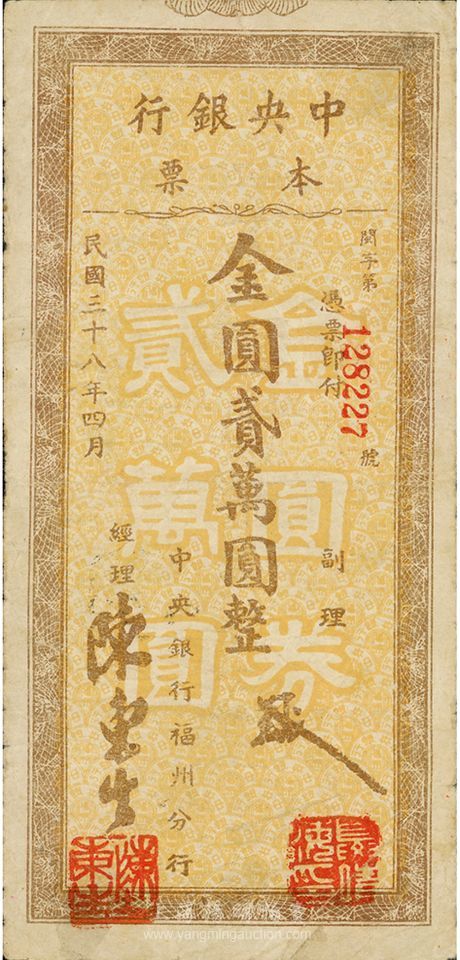 中央銀行
本票
閩字第
128227
號
憑票即付
金圓貳萬圓整
金圓券
貳萬圓
副理
中央銀行福州分行
經理
陳東生
民國三十八年四月
陳東生
www.yangmingauction.com